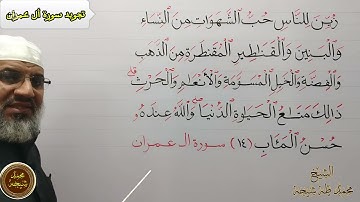 تجويد سورة آل عمران
زُيِّنَ لِلنَّاسِ حُبُّ الشَّهَوَاتِ مِنَ النِّسَاءِ
وَالْبَنِينَ وَالْقَنَاطِيرِ الْمُقَنطَرَةِ مِنَ الذَّهَبِ
وَالْفِضَّةِ وَالْخَيْلِ الْمُسَوَّمَةِ وَالْأَنْعَامِ وَالْحَرْثِ
ذَٰلِكَ مَتَاعُ الْحَيَاةِ الدُّنْيَا وَاللَّهُ عِندَهُ
حُسْنُ الْمَآبِ (١٤) سورة ال عمران
الشيخ
محمد طه شيحة
محمد
شيحة